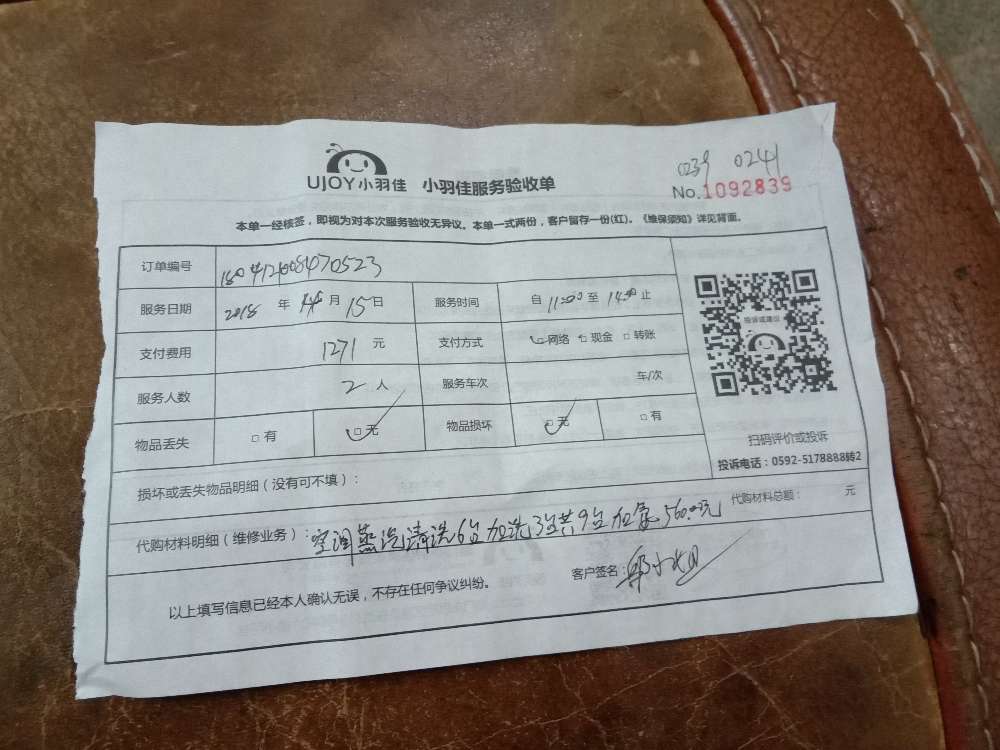 0239 0241
UJOY小羽佳 小羽佳服务验收单
No.1092839
本单一经核签，即视为对本次服务验收无异议。本单一式两份，客户留存一份(红)。《维保须知》详见背面。
订单编号
服务日期 2018 年 月 15 日 服务时间 自 11:00 至 14:00 止
支付费用 1271 元 支付方式 网络 □ 现金 □ 转账
服务人数 2 人 服务车次 车/次
物品丢失 □ 有 □ 无 物品损坏 □ 无 □ 有
投诉或建议
扫码评价或投诉
投诉电话：0592-5178888转2
损坏或丢失物品明细（没有可不填）：
代购材料明细（维修业务）：空调蒸汽清洗6台加洗3台共9台 560.0元 代购材料总额： 元
以上填写信息已经本人确认无误，不存在任何争议纠纷。 客户签名：